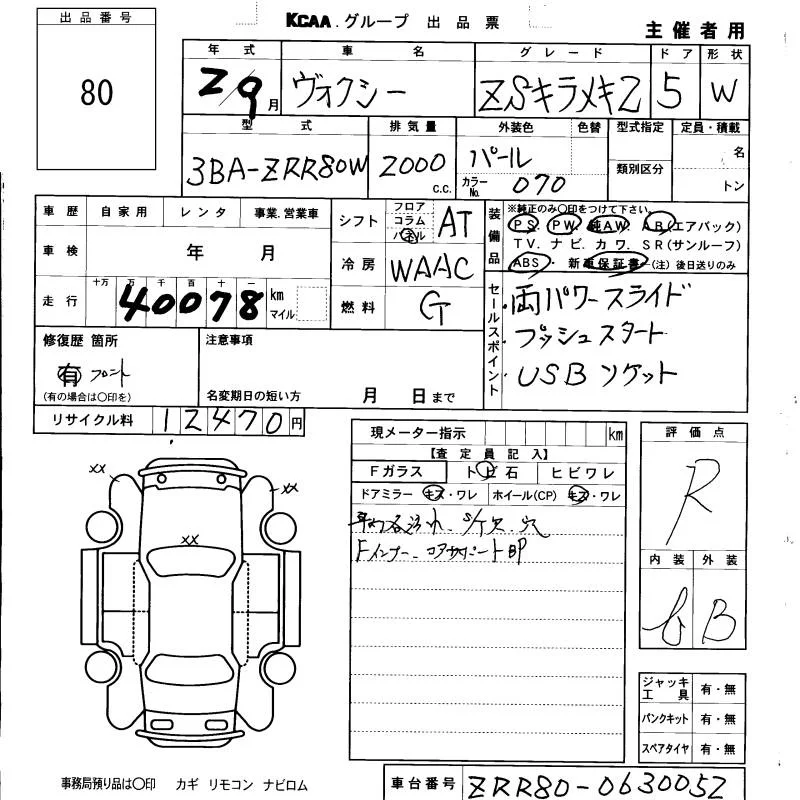 KCAA.グループ 出品票
主催者用
出品番号
80
年式 車名 グレード ドア 形状
2/9月 ヴォクシー ZSキラメキ2 5 W
型式 排気量 外装色 色替 型式指定 定員・積載
3BA-ZRR80W 2000 c.c. パール 類別区分 名
カラーNo. 070 トン
車歴 自家用 レンタ 事業.営業車
車検 年 月
走行 十万 万 千 百 十 一
40078 km マイル
シフト フロア コラム パネル AT
冷房 WAAC
燃料 G
装備品
※純正のみ〇印をつけて下さい。
PS. PW. 純AW. AB(エアバック)
TV. ナビ. カワ. SR(サンルーフ)
ABS・ 新車保証書・(注)後日送りのみ
セールスポイント
・両パワースライド
・プッシュスタート
・USBソケット
修復歴 箇所
有 フロント
(有の場合は〇印を)
注意事項
名変期日の短い方 月 日まで
リサイクル料 12470円
現メーター指示 km
【査定員記入】
Fガラス ト ビ 石 ヒビワレ
ドアミラー キズ・ワレ ホイール(CP) キズ・ワレ
Fインナー、コアサポートBP
評価点
R
内装 外装
B
ジャッキ工具 有・無
パンクキット 有・無
スペアタイヤ 有・無
xx
xx
xx
事務局預り品は〇印 カギ リモコン ナビロム
車台番号 ZRR80-0630052